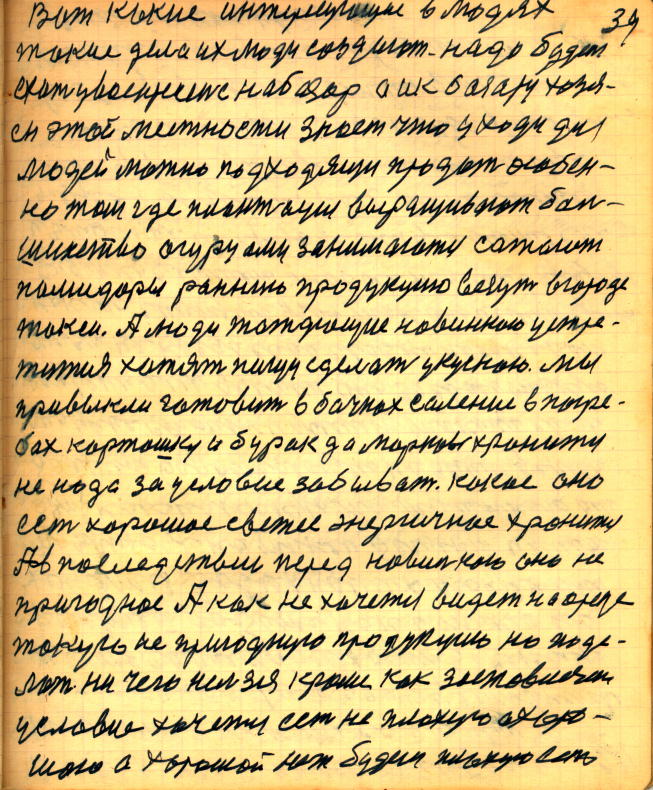 Вот какие интересующие в людях 39
такие дела их люди создают. надо будет
ехат у воскресенс на базар а ик базару хозя-
ен этой местности знает что у ходи для
людей можно подходящи продат особен-
но там где плантации выращивают бак-
шихство огурцами занимаются сажают
памидоры раннию продукцию везут в городе
такси. А люди жаждующие новинкою устре-
тится хотят пищу сделат укусною. мы
привыкли готовит в бочках саление в погре-
бах картошку и бурак да марковь хранится
не нада за условие забыват. какое оно
ест хорошое свежее энергичное хронится
А в последствии перед новинкою оно не
пригодное А как не хочется видет на
такую не пригодную продукцию но поде-
лат ни чего нелзя кроме как
условие хочется ест не плохую а хоро-
шою а хорошой нет будем плохую есть